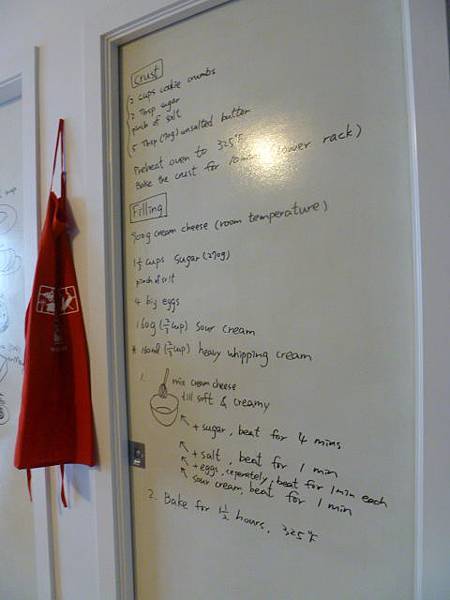 Crust
2 cups cookie crumbs
2 Tbsp sugar
pinch of salt
5 Tbsp (70g) unsalted butter
Preheat oven to 325°F
Bake the crust for 10 min (lower rack)
Filling
900g cream cheese (room temperature)
1⅓ cups sugar (270g)
pinch of salt
4 big eggs
160g (⅔ cup) sour cream
* 160ml (⅔ cup) heavy whipping cream
1.
mix cream cheese
till soft & creamy
+ sugar, beat for 4 mins
+ salt, beat for 1 min
+ eggs, seperately, beat for 1 min each
sour cream, beat for 1 min
2. Bake for 1½ hours, 325°F